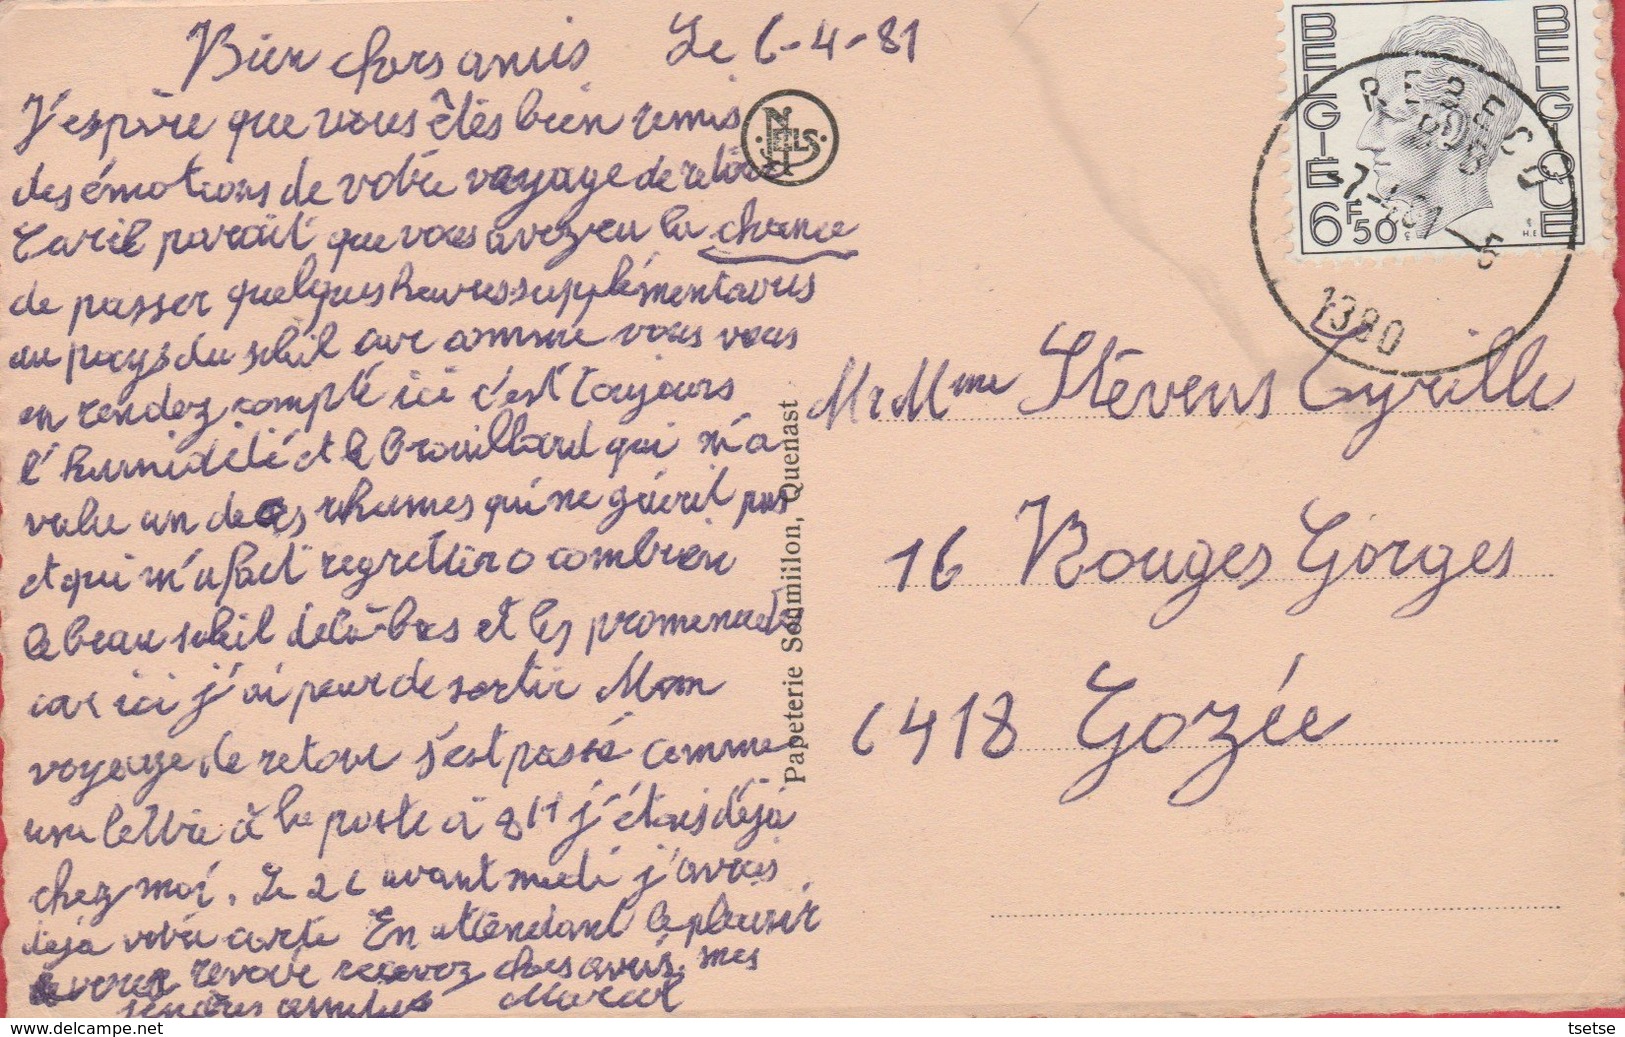 Bien chers amis Le 6-4-81
J'espère que vous êtes bien remis
des émotions de votre voyage de retour
Car il paraît que vous avez eu la chance
de passer quelques heures supplémentaires
au pays du soleil car comme vous vous
en rendez compte ici c'est toujours
l'humidité et le brouillard qui m'a
valu un de ces rhumes qui ne guérit pas
et qui m'a fait regretter o combien
le beau soleil de là-bas et les promenades
car ici j'ai peur de sortir Mon
voyage de retour s'est passé comme
une lettre à la poste à 8H j'étais déjà
chez moi. Le 26 avant midi j'avais
déjà votre carte En attendant le plaisir
revoir recevez chers amis mes
tendres amitiés Marcel
NELS
Papeterie Soumillon, Quenast
BELGIE BELGIQUE
6F50
REBECQ
-7-4-81
1380
Mr Mme Stévens Cyrille
16 Rouges Gorges
6418 Gozée
tsetse